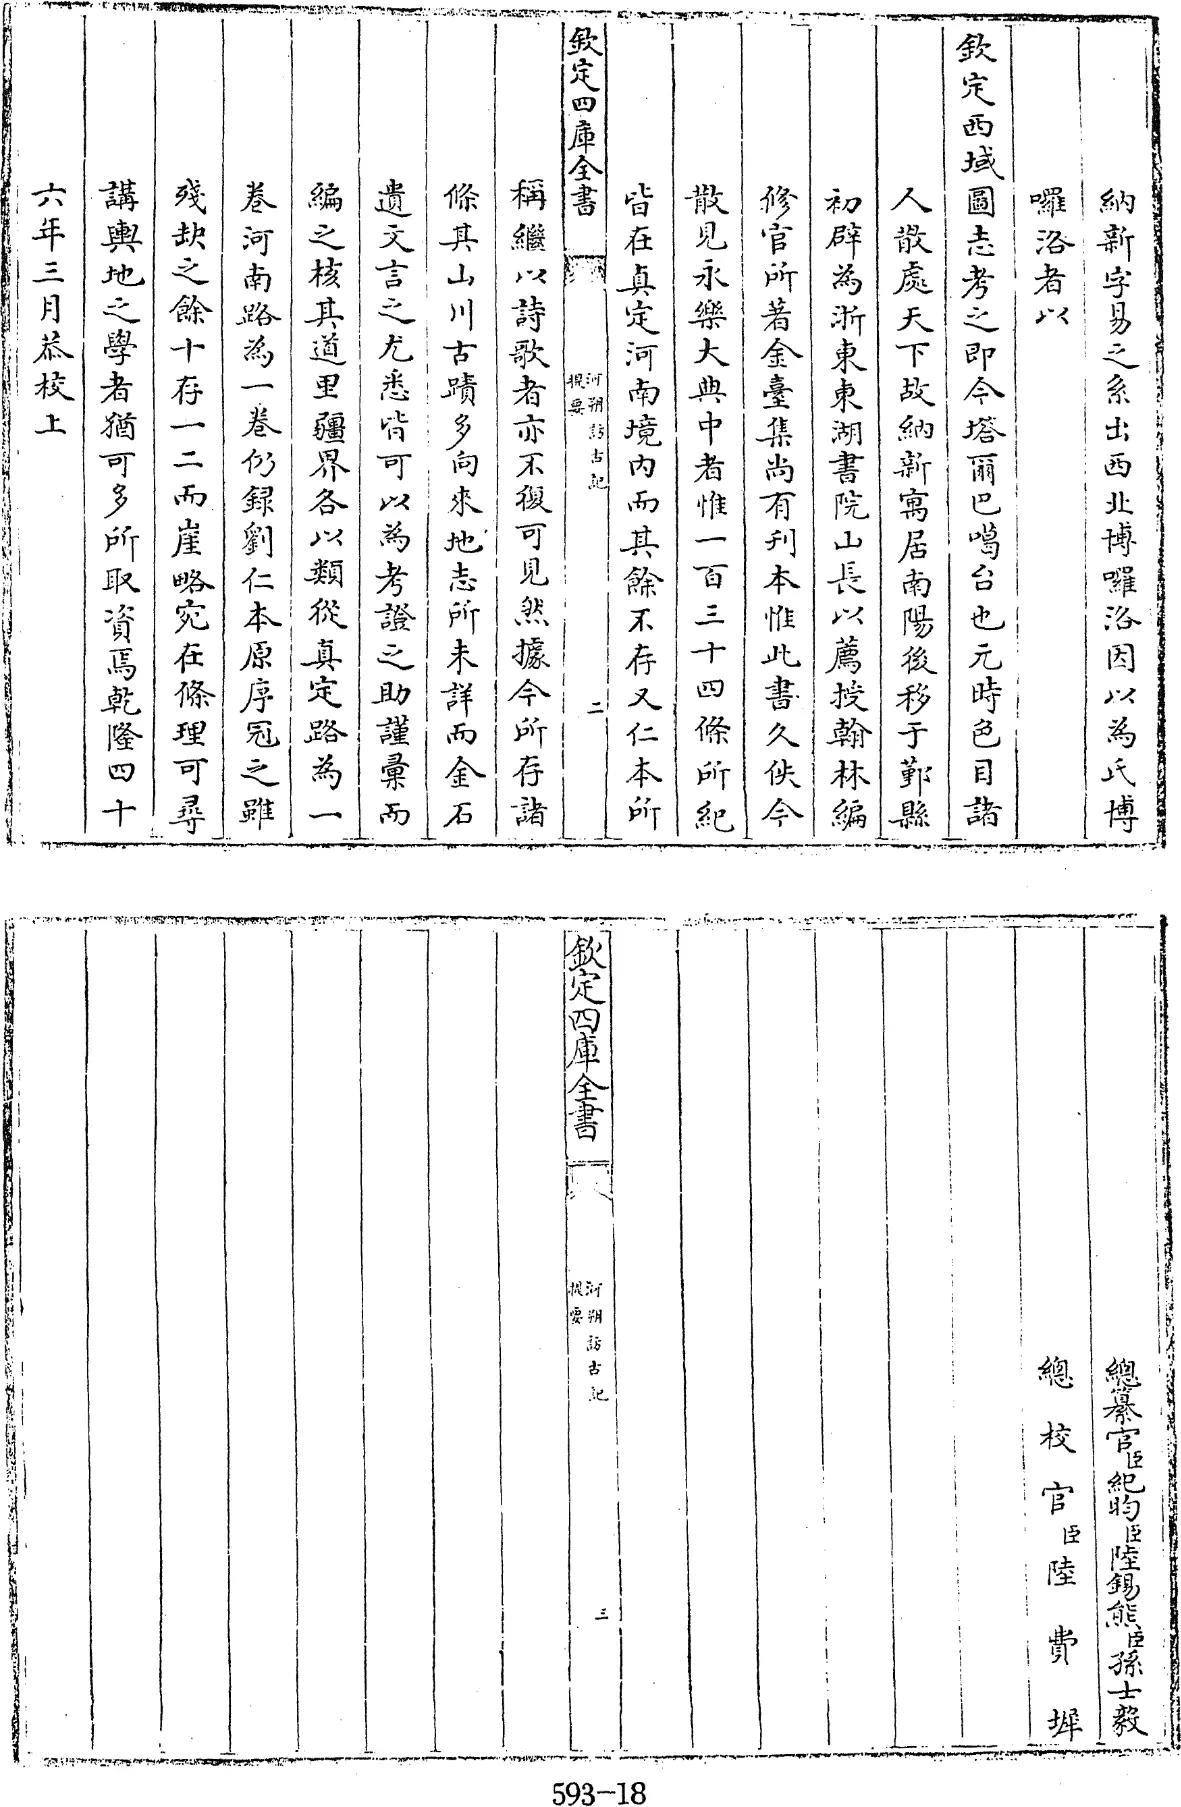 納新字易之系出西北博囉洛因以為氏博
囉洛者以
欽定西域圖志考之即今塔爾巴噶台也元時色目諸
人散處天下故納新寓居南陽後移于鄞縣
初辟為浙東東湖書院山長以薦授翰林編
修官所著金臺集尚有刊本惟此書久佚今
散見永樂大典中者惟一百三十四條所紀
皆在真定河南境内而其餘不存又仁本所
欽定四庫全書
河朔訪古記
提要
二
稱繼以詩歌者亦不復可見然據今所存諸
條其山川古蹟多向來地志所未詳而金石
遺文言之尤悉皆可以為考證之助謹彙而
編之核其道里疆界各以類從真定路為一
卷河南路為一卷仍録劉仁本原序冠之雖
殘缺之餘十存一二而崖略宛在條理可尋
講輿地之學者猶可多所取資焉乾隆四十
六年三月恭校上
總纂官臣紀昀臣陸錫熊臣孫士毅
總校官臣陸費墀
欽定四庫全書
河朔訪古記
提要
三
593-18